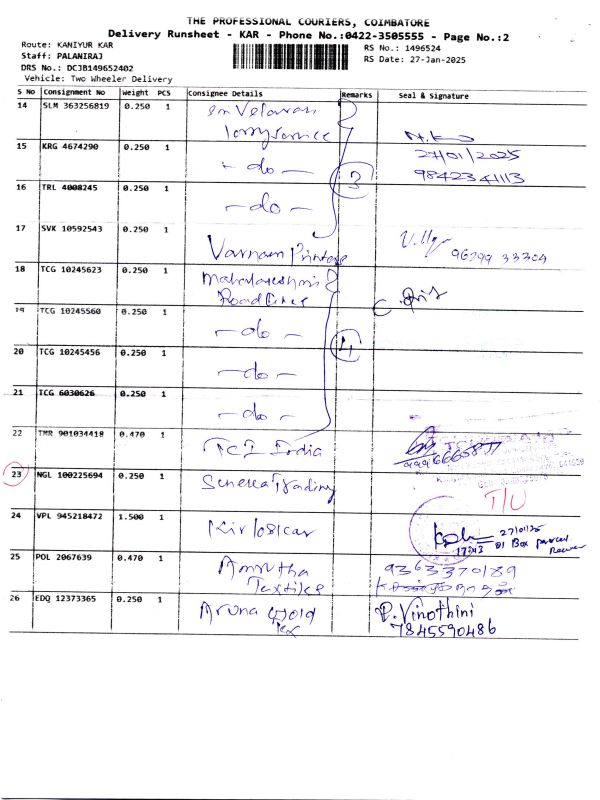 THE PROFESSIONAL COURIERS, COIMBATORE
Delivery Runsheet - KAR - Phone No.:0422-3505555 - Page No.:2
Route: KANIYUR KAR
RS No.: 1496524
Staff: PALANIRAJ
RS Date: 27-Jan-2025
DRS No.: DCJB149652402
Vehicle: Two Wheeler Delivery
S No Consignment No Weight PCS Consignee Details Remarks Seal & Signature
14 SLM 363256819 0.250 1 Velavan
lorry service
27/01/2025
15 KRG 4674290 0.250 1 - do -
3
9842341113
16 TRL 4008245 0.250 1 - do -
17 SVK 10592543 0.250 1 Varnam Printers 96299 33304
18 TCG 10245623 0.250 1 Mahalakshmi
Road lines
19 TCG 10245560 0.250 1 - do -
4
20 TCG 10245456 0.250 1 - do -
21 TCG 6030626 0.250 1 - do -
22 TMR 901034418 0.470 1 TCI India
23 NGL 100225694 0.250 1 Trading
T/U
24 VPL 945218472 1.500 1 Kirloskar
27/01/25
01 Box parcel
25 POL 2067639 0.470 1 Amrutha 9363370189
Textiles
26 EDQ 12373365 0.250 1 Aruna Gold P. Vinothini
Tex 7845590486